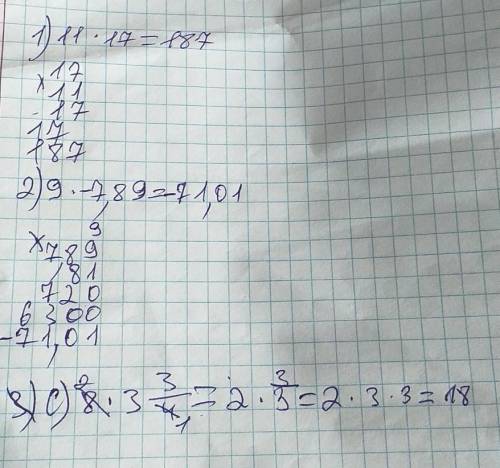 1) 11 · 17 = 187
× 17
11
17
17
187
2) 9 · -7,89 = -71,01
9
× 789
81
720
6300
-71,01
3) 0) 8² · 3 3/4 1 = 2 · 3/3 = 2 · 3 · 3 = 18